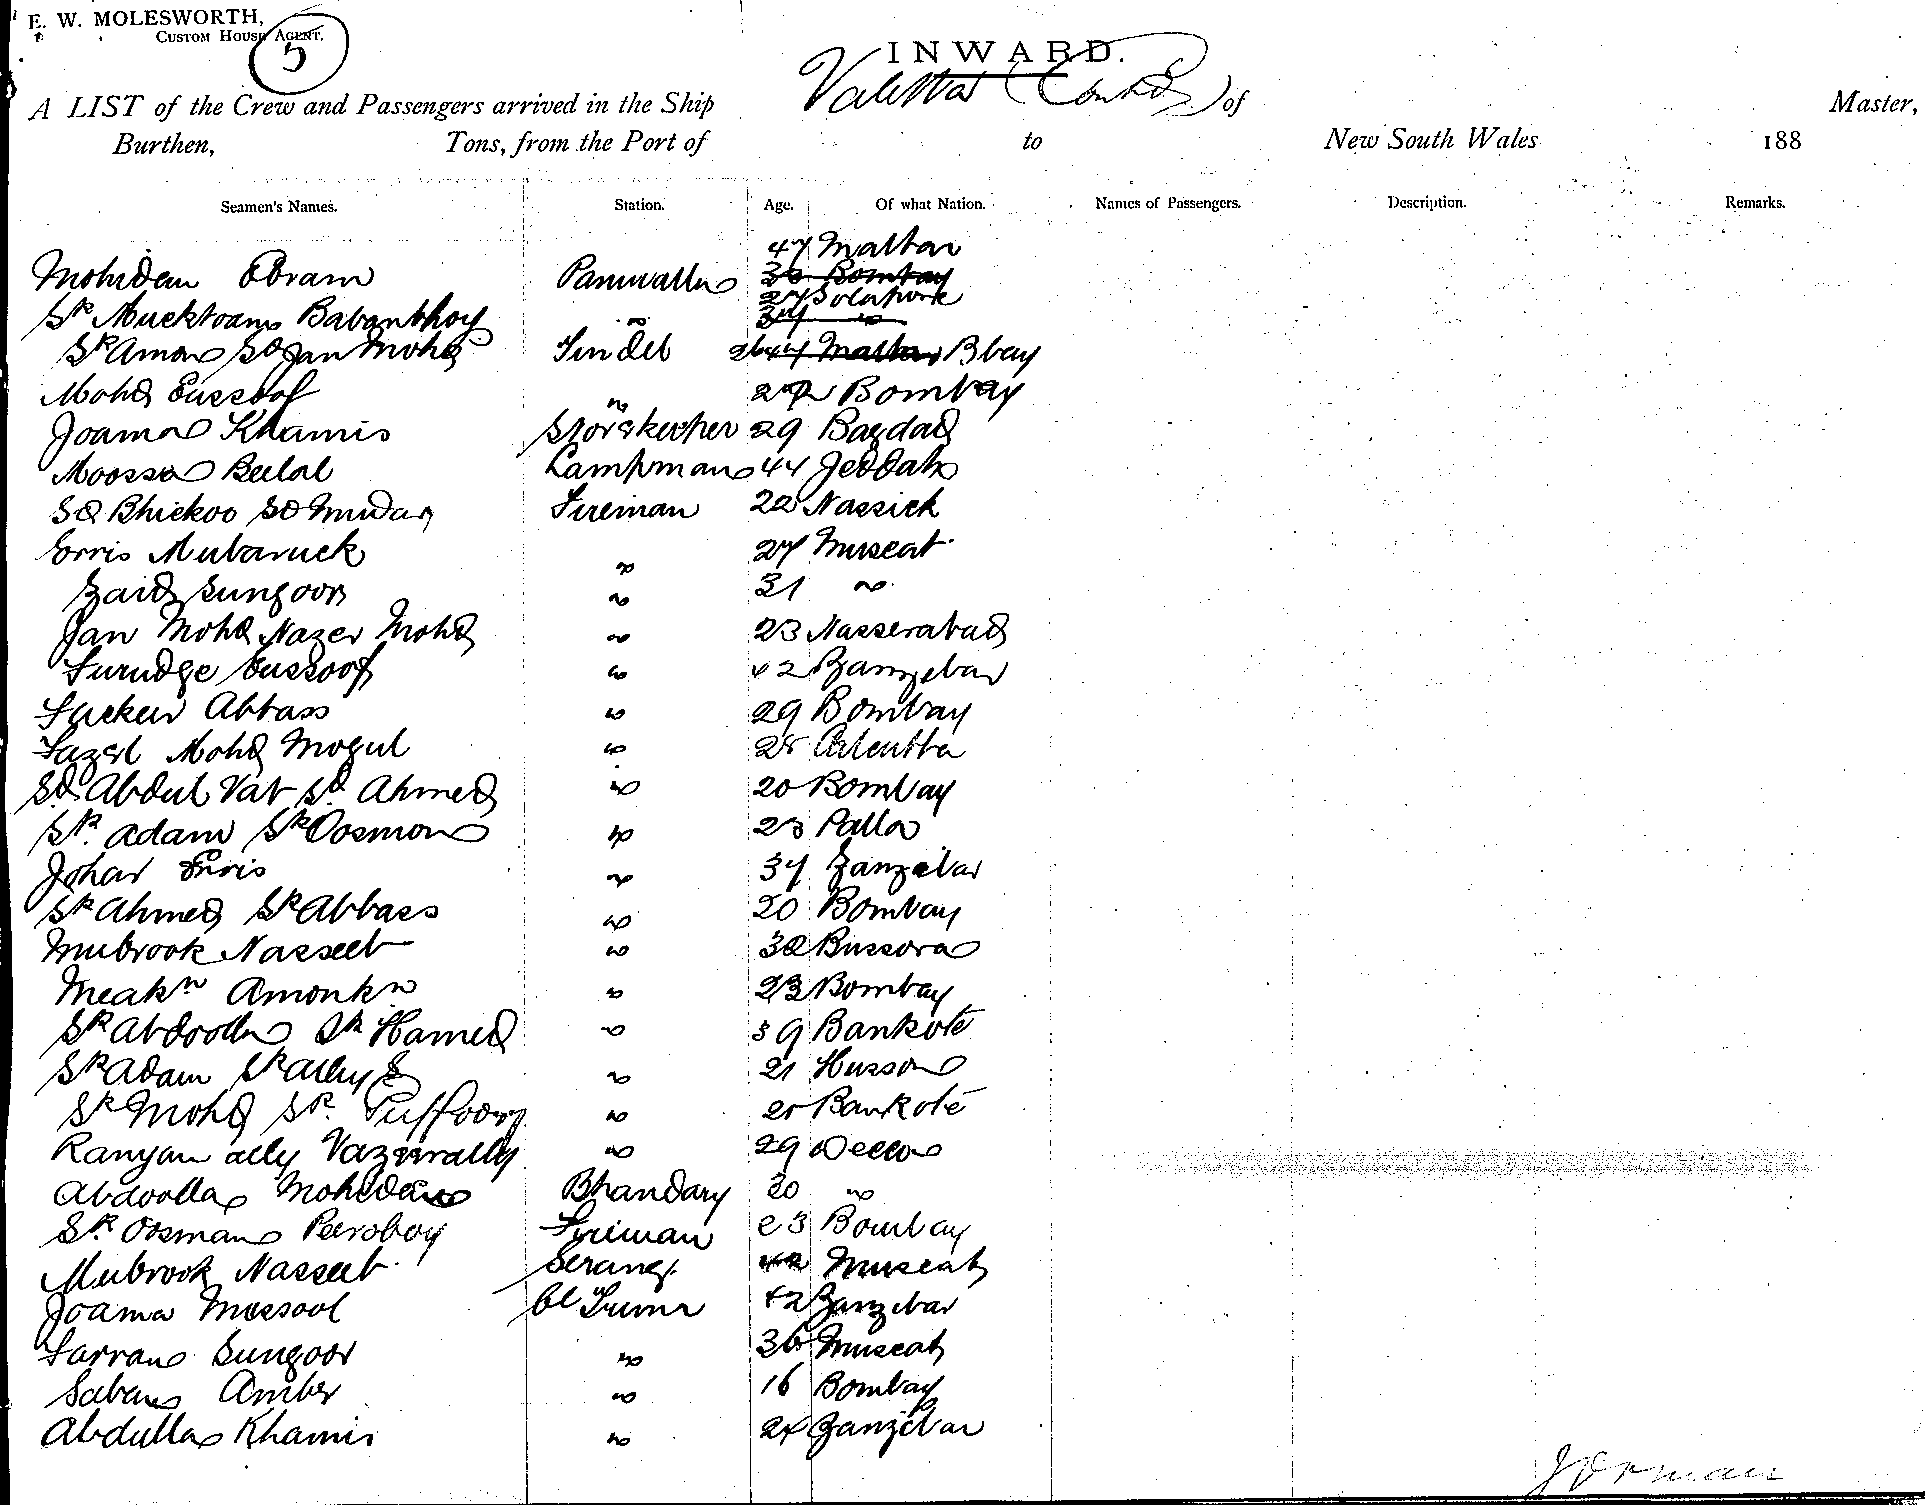 E. W. MOLESWORTH,
CUSTOM HOUSE AGENT.
5
INWARD.
A LIST of the Crew and Passengers arrived in the Ship Valetta (Contd) of Master,
Burthen, Tons, from the Port of to New South Wales 188
Seamen's Names. Station. Age. Of what Nation. Names of Passengers. Description. Remarks.
Mohiden Ebram Paniwalla 47 Malbar
30 Bombay
Sk. Mucktoam Babanbhoy " 27
37 "
Sk Amon Sd Jan Mohd Tindel 26 47 Malbar Bbay
Mohd Eussoof " 27 Bombay
Joama Khamis Storekeeper 29 Bagdad
Moossa Belal Lampman 44 Jeddah
Sd Bhickoo Sd Fireman 22 Nassick
Mubaruck " 27 Muscat
Zaid Sungoor " 31 "
Jan Mohd Nazer Mohd " 23 Nasserabad
Furudge Eussoof " 42 Zanzebar
Abbass " 29 Bombay
Fazel Mohd Mogul " 28 Calcutta
Sd. Abdul Vat Sd. Ahmed " 20 Bombay
Sk. Adam Sk Oosmon " 23 Palla
Johar Enis " 37 Zanzebar
Sk Ahmed Sk Abbass " 20 Bombay
Mubrook Nasseeb " 32 Bussora
Meakn Amonkn " 23 Bombay
Sk Abdoolla Sk Hamed " 39 Bankote
Sk Adam Sk Ally " 21
Sk Mohd Sk. " 25 Bankote
Ally Vazerally " 29
Abdoolla Mohiden Bhandary 30 "
Sk. Oosman Peeroboy Fireman 23 Bombay
Mubrook Nasseeb Serang 42 Muscat
Joama Massool Cl Trimr 42 Zanzebar
Farran Sungoor " 36 Muscat
Saban Amber " 16 Bombay
Abdulla Khamis " 24 Zanzebar